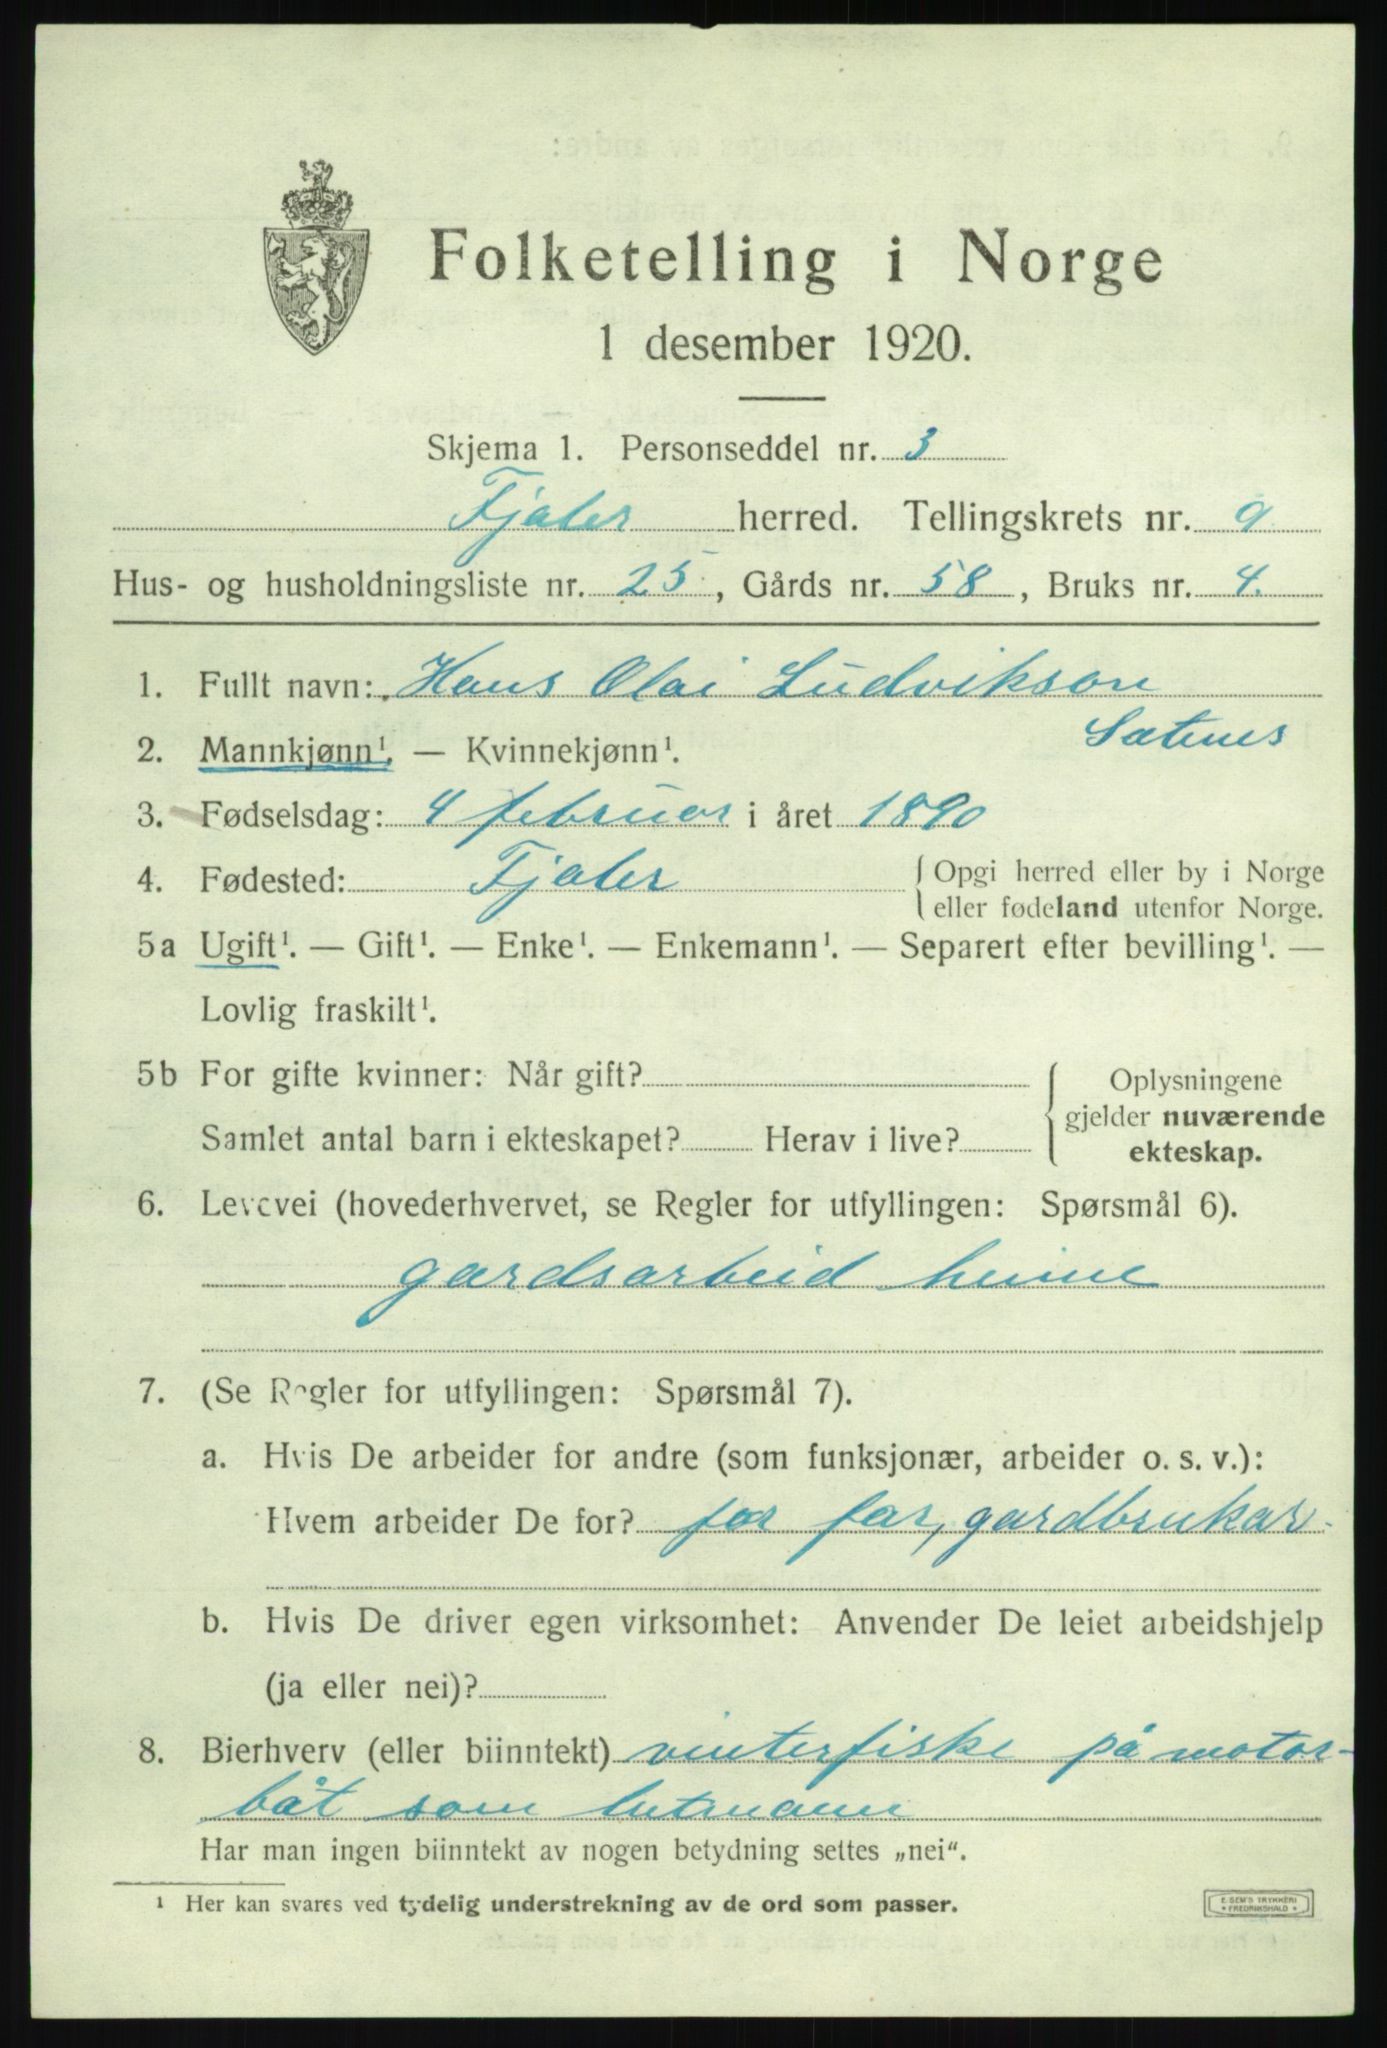 Folketelling i Norge
1 desember 1920.
Skjema 1. Personseddel nr. 3
Fjaler herred. Tellingskrets nr. 9
Hus- og husholdningsliste nr. 25, Gårds nr. 58, Bruks nr. 4.
1. Fullt navn: Hans Olai Ludvikson
Sætenes
2. Mannkjønn¹. — Kvinnekjønn¹.
3. Fødselsdag: 4 februar i året 1890
4. Fødested: Fjaler { Opgi herred eller by i Norge
eller fødeland utenfor Norge.
5a Ugift¹. — Gift¹. — Enke¹. — Enkemann¹. — Separert efter bevilling¹. —
Lovlig fraskilt¹.
5b For gifte kvinner: Når gift? { Oplysningene
gjelder nuværende
Samlet antal barn i ekteskapet? Herav i live? ekteskap.
6. Levevei (hovederhvervet, se Regler for utfyllingen: Spørsmål 6).
gardsarbeid heime
7. (Se Regler for utfyllingen: Spørsmål 7).
a. Hvis De arbeider for andre (som funksjonær, arbeider o. s. v.):
Hvem arbeider De for? for far, gardbrukar
b. Hvis De driver egen virksomhet: Anvender De leiet arbeidshjelp
(ja eller nei)?
8. Bierhverv (eller biinntekt) vinterfiske på motor-
båt som lutmann
Har man ingen biinntekt av nogen betydning settes „nei“.
¹ Her kan svares ved tydelig understrekning av de ord som passer.
E. SEM'S TRYKKERI
* FREDRIKSHALD *